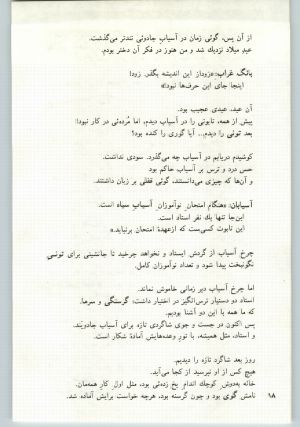 از آن پس، گوئی زمان در آسیاب جادوئی تندتر می‌گذشت.
عید میلاد نزدیک شد و من هنوز در فکر آن دختر بودم.
بانگ غراب: «زودباز این اندیشه بگذر. زود!
اینجا جای این حرف‌ها نبود!»
آن عید، عیدی عجیب بود.
پیش از همه، تابوتی را در آسیاب دیدم، اما مُرده‌ئی در کار نبود!
بعد تونی را دیدم... آیا گوری را کنده بود؟
کوشیدم دریابم در آسیاب چه می‌گذرد. سودی نداشت.
حس درد و ترس بر آسیاب حاکم بود
و آن‌ها که چیزی می‌دانستند، گوئی قفلی بر زبان داشتند.
آسیابان: «هنگام امتحان نوآموزان آسیاب سیاه است.
این‌جا تنها یك نفر استاد است.
این تابوت کسی‌ست که ازعهدهٔ امتحان برنیاید.»
چرخ آسیاب از گردش ایستاد و نخواهد چرخید تا جانشینی برای تونسی
نگونبخت پیدا شود و تعداد نوآموزان کامل.
اما چرخ آسیاب دیر زمانی خاموش نماند.
استاد دو دستیار ترس‌انگیز در اختیار داشت: گرسنگی و سرما.
که ما همه با این دو آشنا بودیم.
پس اکنون در جست و جوی شاگردی تازه برای آسیاب جادویند.
و استاد، مثل همیشه، با تور وعده‌هایش آمادهٔ شکار است.
روز بعد شاگرد تازه را دیدیم.
هیچ کس از او نپرسید از کجا می‌آید.
خانه به‌دوش کوچك اندام یخ زده‌ئی بود، مثل اولِ کار همه‌مان.
نامش گوی بود و چون گرسنه بود، هرچه خواست برایش آماده شد.
۱۸